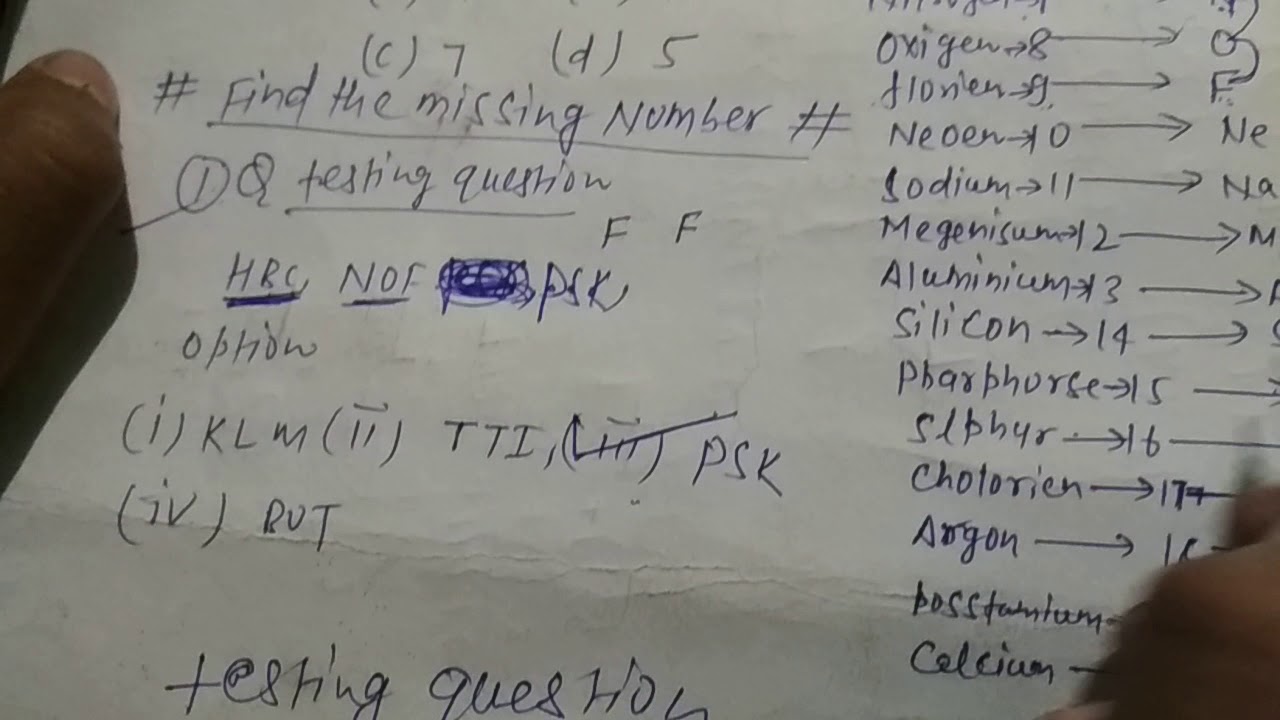 (c) 7 (d) 5
# Find the missing Number #
① Q testing question
F F
HBC NOF PSK
option
(i) KLM (ii) TTI, (iii) PSK
(iv) RUT
testing question
Oxigen→8 → O
florien→9 → F
Neoen→10 → Ne
Sodium→11 → Na
Megenisum→12 → M
Aluminium→13 →
Silicon→14 → S
Pharphorse→15 →
Slphyr→16
Cholorien→17
Argon →
posstamium
Calcium